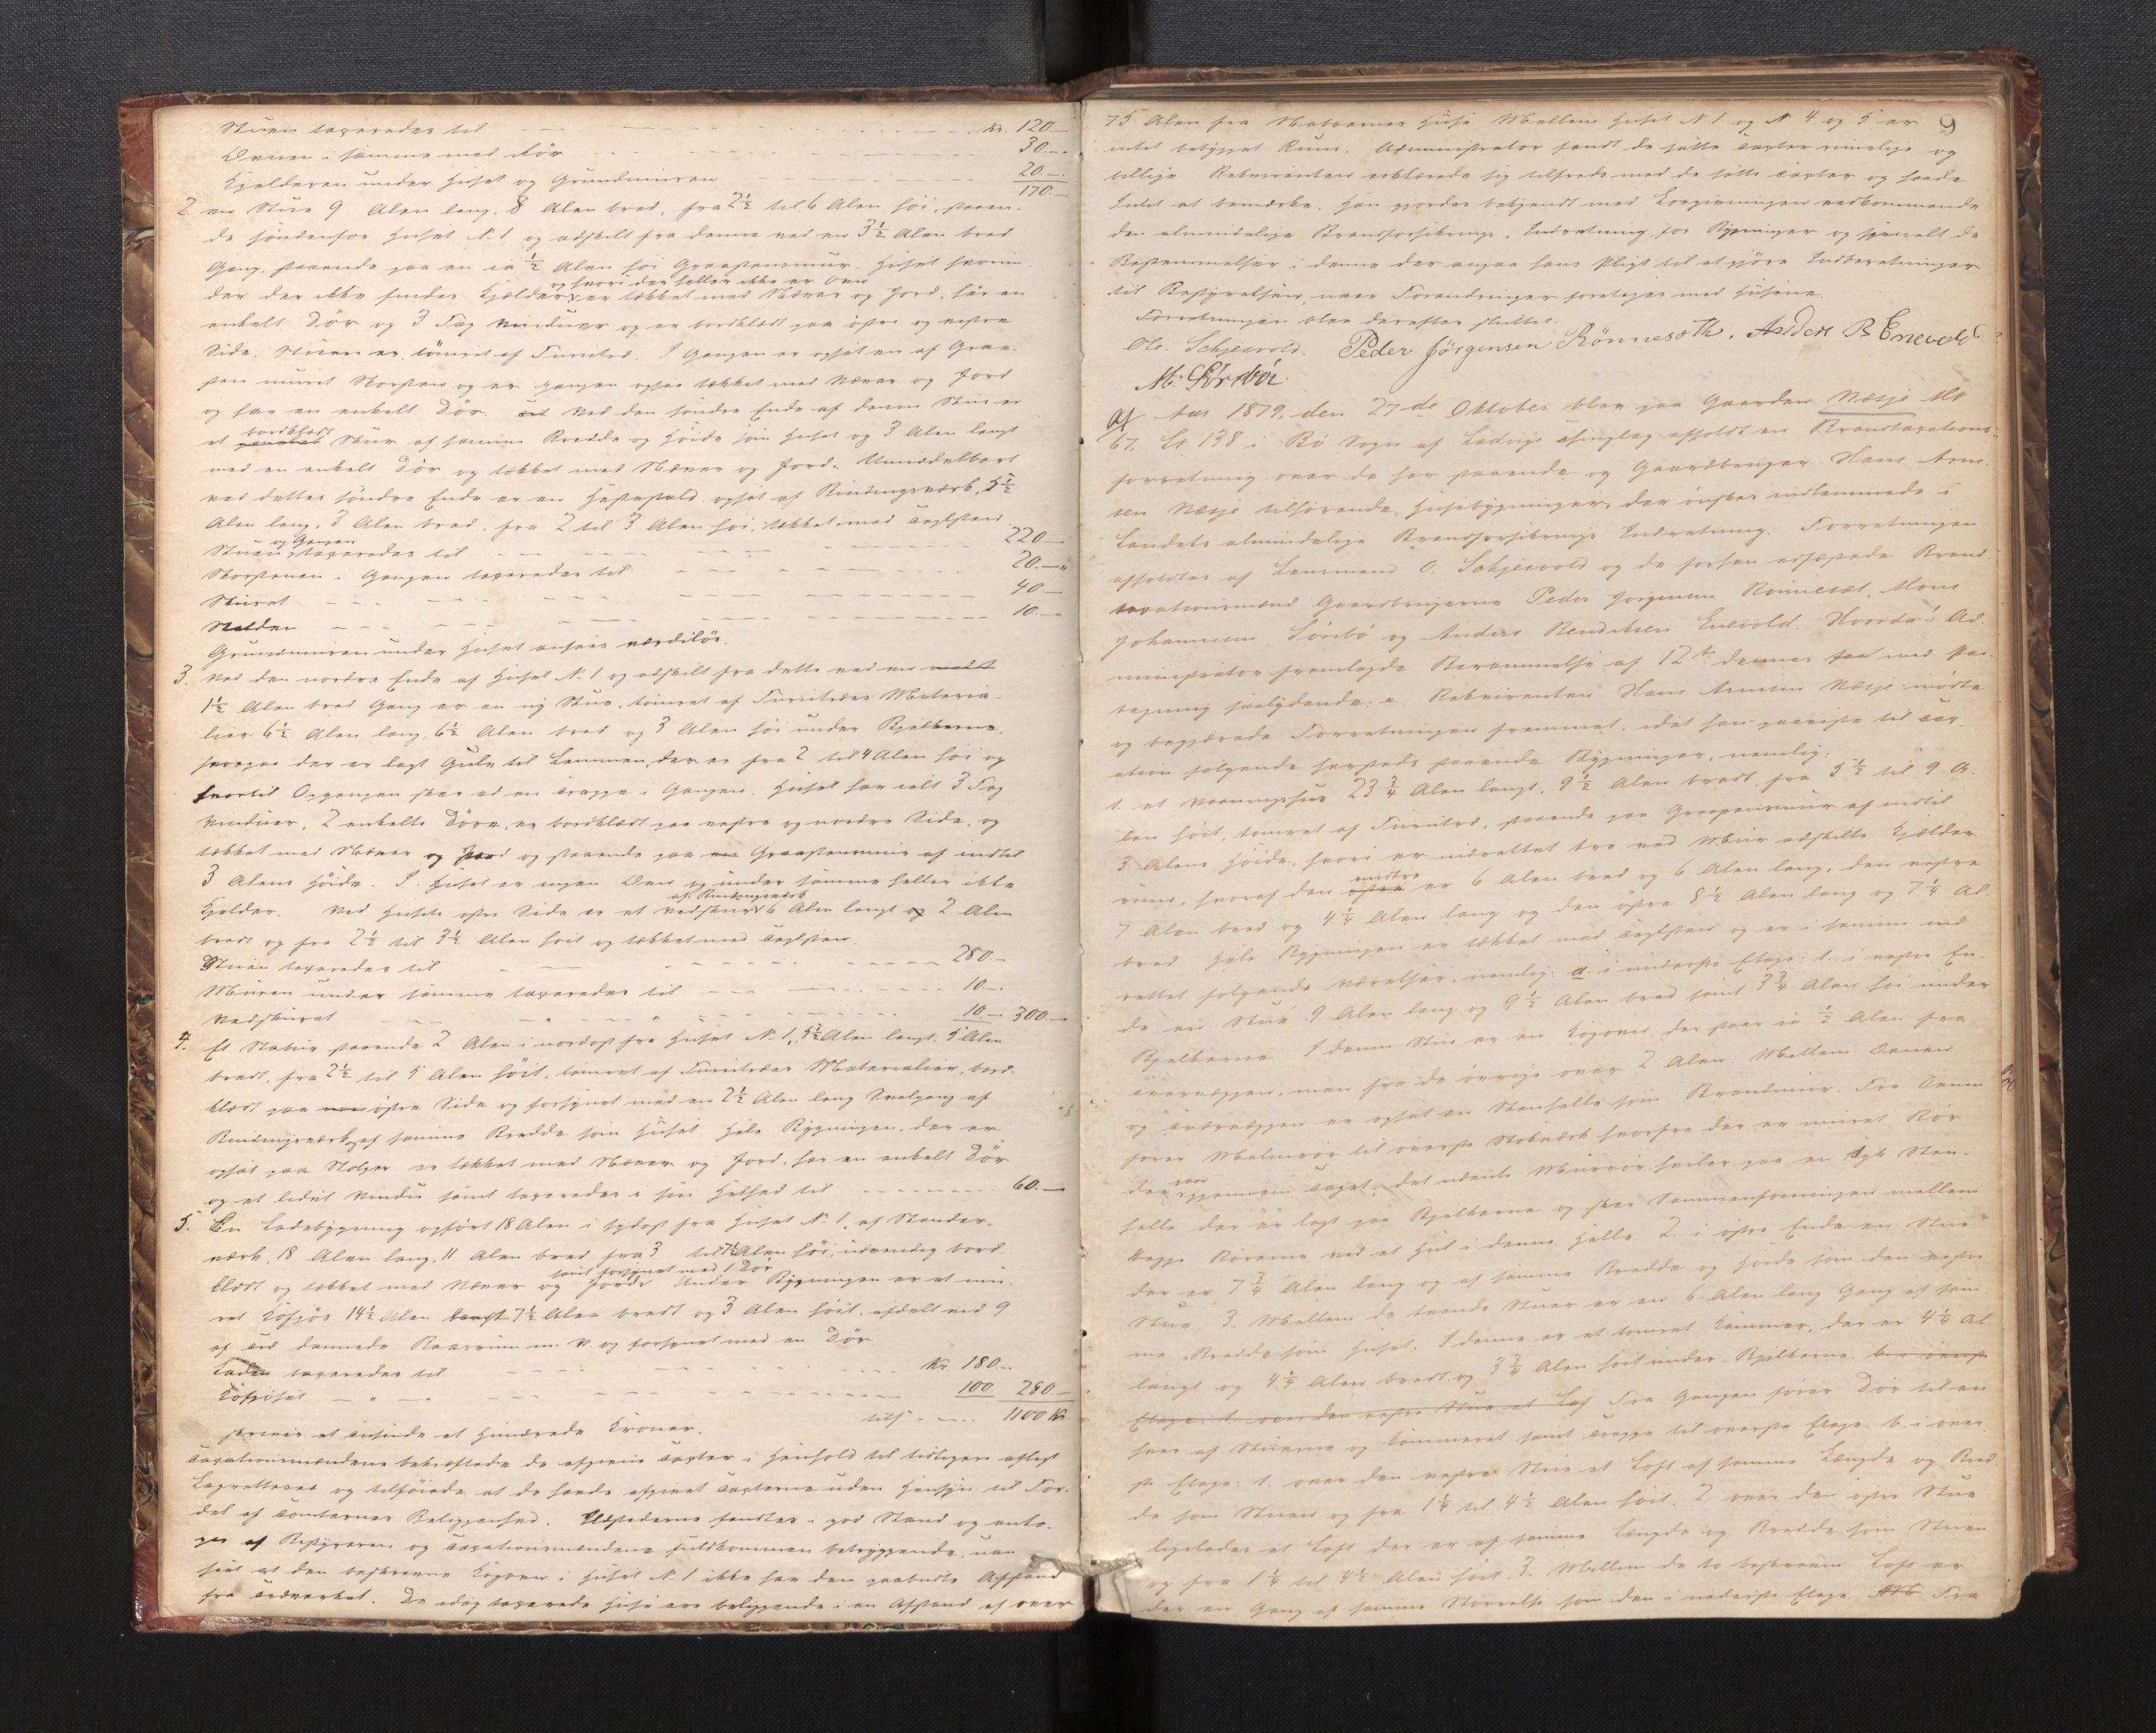 Stuen taxeredes til — — — Kr. 120.—
Ovnen i samme med Rör — — — 30.—
Kjelderen under Huset og Grundmuren — — — 20.—
170.—
2. en Stue 9 Alen lang, 8 Alen bred, fra 2½ til 6 Alen höi, staaen-
de söndenfor Huset No 1 og adskilt fra denne ved en 3½ Alen bred
Gang, staaende paa en ca ½ Alen höi Graastensmur. Huset hvorun-
og hvori der heller ikke er Ovn
der der ikke findes Kjelder, er tækket med Næver og Jord, har en
enkelt Dör og 3 Fag Vinduer og er bordklædt paa östre og vestre
Side. Stuen er tömret af Furutræ. I Gangen er opsat en af Graa-
sten muret Skorsten og er gangen ogsaa tækket med Næver og Jord
og har en enkelt Dör. Ved den söndre Ende af denne Stue er
bordklædt
et Skur af samme Bredde og Höide som Huset og 3 Alen langt
med en enkelt Dör og tækket med Næver og Jord. Umiddelbart
ved dettes söndre Ende er en Hestestald opsat af Bindingsværk, 5½
Alen lang, 3 Alen bred, fra 2 til 3 Alen höi, tækket med Taglsten
og Gangen
Stuen taxeredes til — — — 220.—
Skorstenen i Gangen taxeredes til — — — 20.—
Skuret — — — 40.—
Stalden — — — 10.—
Grundmuren under Huset ansees værdilös.
3. Ved den nordre Ende af Huset No 1 og adskilt fra dette ved en
1½ Alen bred Gang er en ny Stue, tömret af Furutræes Materia-
lier 6½ Alen lang, 6½ Alen bred og 3 Alen höi under Bjelkerne,
hvorpaa der er lagt Gulv til Lemmen, der er fra 2 til 4 Alen höi og
hvortil Opgangen sker ad en Trappe i Gangen. Huset har ialt 3 Fag
Vinduer, 2 enkelte Döre, er bordklædt paa vestre og nordre Side, og
tækket med Næver og Jord og staaende paa Graastensmur af indtil
3 Alens Höide. I Huset er ingen Ovn og under samme heller ikke
af Bindingsværk
Kjelder. Ved Husets östre Side er et Vedskur 6 Alen langt og 2 Alen
bredt og fra 2½ til 3½ Alen höit og tækket med Taglsten.
Stuen taxeredes til — — — 280.—
Muren under samme taxeredes til — — — 10.—
Vedskuret — — — 10.— 300.—
4. Et Stabur staaende 2 Alen i nordost fra Huset No 1, 5½ Alen langt, 5 Alen
bredt, fra 2½ til 5 Alen höit, tömret af Furutræes Materialier, bord-
klædt paa östre Side og forsynet med en 2½ Alen lang Svalgang af
Bindingsværk af samme Bredde som Huset. Hele Bygningen, der er
opsat paa Stolper er tækket med Næver og Jord, har en enkelt Dör
og et lidet Vindu samt taxeredes i sin Helhed til — — — 60.—
5. En Ladebygning opfört 18 Alen i sydost fra Huset No 1, af Stender-
værk, 18 Alen lang, 11 Alen bred, fra 3 til 7½ Alen höi, udvendig bord-
samt forsynet med 1 Dör
klædt og tækket med Næver og Jord. Under Bygningen er et mu-
ret Kofjös 14½ Alen langt 7½ Alen bredt og 3 Alen höit, afdelt ved 9
af Træ dannede Baaserum m. v. og forsynet med en Dör
Laden taxeredes til — — — Kr. 180.—
Kofjöset — " — — — 100 280.—
tils. — — 1100 Kr.
skriver et Tusinde et Hundrede Kroner.
Taxationsmændene bekræftede de afgivne Taxter i Henhold til tidligere aflagt
Lagretteeed og tilföiede at de havde afgivet Taxterne uden Hensyn til For-
del af Tomternes Beliggenhed. Ildstederne fandtes i god Stand og anto-
ges af Bestyreren og Taxationsmændene fuldkommen betryggende, uan-
seet at den beskrevne Kogovn i Huset No 1 ikke har den paabudte Afstand
fra Træværket. De idag taxerede Huse ere beliggende i en Afstand af over
9
75 Alen fra Naboernes Huse. Mellem Huset No 1 og No 4 og 5 er
intet bebygget Rum. Administrator fandt de satte Taxter rimelige og
billige. Rekvirenten erklærede sig tilfreds med de satte Taxter og havde
Intet at bemærke. Han gjordes bekjendt med Lovgivningen vedkommende
den almindelige Brandforsikrings Indretning for Bygninger og specielt de
Bestemmelser i denne der angaa hans Pligt til at gjöre Indberetninger
til Bestyrelsen, naar Forandringer foretages med Husene.
Forretningen blev derefter sluttet.
Ole Schjesvold. Peder Jörgensen Rönnesæth. Anders B Enevold
M. Sörebö
Aar 1879, den 27de Oktober blev paa Gaarden Næsje Mt
67. Lb 138 i Bö Sogn af Ladvigs Thinglag afholdt en Brandtaxations-
forretning over de her staaende og Gaardbruger Hans Arne-
sen Næsje tilhörende Husebygninger, der önskes indlemmede i
Landets almindelige Brandforsikrings Indretning. Forretningen
afholdtes af Lensmand O. Schjesvold og de forhen edfæstede Brand-
taxationsmænd Gaardbrugerne Peder Jörgensen Rönnesæt, Mons
Johannesen Sörebö og Anders Bendiksen Enevold. Hvorda: Ad-
ministrator fremlagde Berammelse af 12te dennes med Paa-
tegning saalydende: Rekvirenten Hans Arnesen Næsje mödte
og begjærede Forretningen fremmet, idet han paaviste til Tax-
ation fölgende hersteds staaende Bygninger, nemlig:
1. et Vaaningshus 23¾ Alen langt, 9½ Alen bredt, fra 5½ til 9 A-
len höit, tömret af Furutræ, staaende paa Graastensmur af indtil
3 Alens Höide, hvori er indrettet tre ved Mur adskilte Kjelder-
midtre
rum, hvoraf den er 6 Alen bred og 6 Alen lang, den vestre
7 Alen bred og 4¼ Alen lang og den östre 8½ Alen lang og 7¼ Al.
bred. Hele Bygningen er tækket med Taglsten og er i samme ind-
rettet fölgende Værelser, nemlig: a. i underste Etage: 1. i vestre En-
de en Stue 9 Alen lang og 9½ Alen bred samt 3¾ Alen höi under
Bjelkerne. I denne Stue er en Kogovn, der staar ca ½ Alen fra
Tvervæggen, men fra de övrige over 2 Alen. Mellem Ovnen
og Tvervæggen er opsat en Stenhelle som Brandmur. Fra Ovnen
förer Malmrör til överste Stokværk hvorfra der er muret Rör
gaar
der gjennem Taget; det nævnte Murrör hviler paa en tyk Sten-
helle der er lagt paa Bjelkerne og sker Sammenföiningen mellem
begge Rörerne ved et Hul i denne Helle. 2. i östre Ende en Stue
der er 7¾ Alen lang og af samme Bredde og Höide som den vestre
Stue. 3. Mellem de tvende Stuer er en 6 Alen lang Gang af sam-
me Bredde som Huset. I denne er et tömret Kammer, der er 4¼ Al.
langt og 4¼ Alen bredt og 3¾ Alen höit under Bjelkerne. b. i överste
Etage: 1. over den vestre Stue et Loft Fra Gangen förer Dör til en-
hver af Stuerne og Kammeret samt Trappe til överste Etage. b. i över-
ste Etage: 1. over den vestre Stue et Loft af samme Længde og Bred-
de som Stuen og fra 1¼ til 4½ Alen höit. 2. over den östre Stue
ligeledes et Loft der er af samme Længde og Bredde som Stuen
og fra 1¼ til 4½ Alen höit. 3. Mellem de to beskrevne Loft er
der en Gang af samme Störrelse som den i nederste Etage. Fra